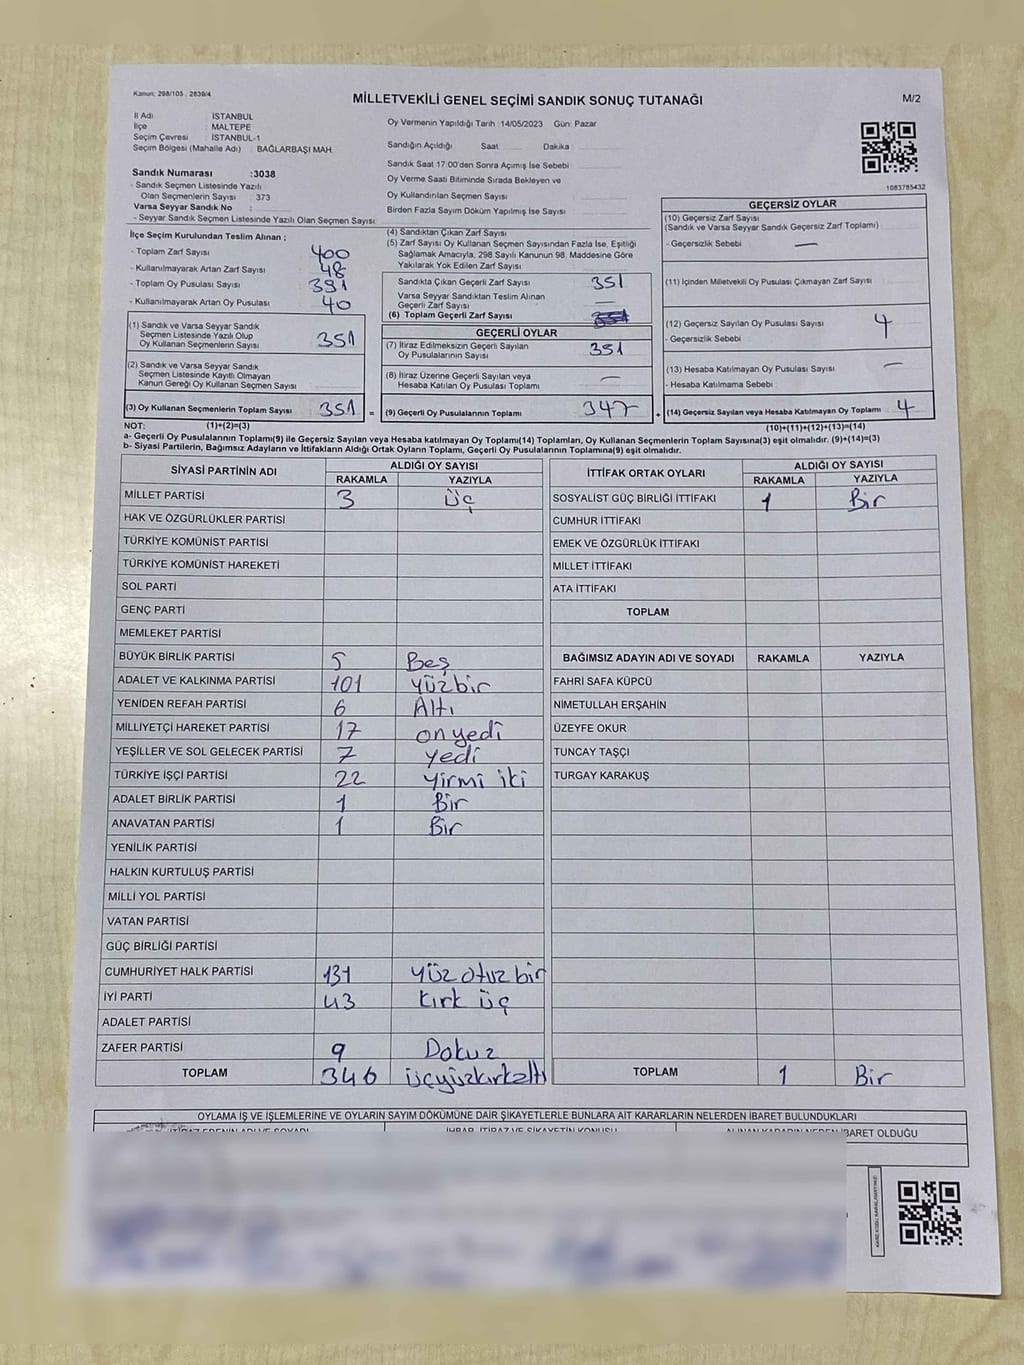 Kanun: 298/105 , 2839/4
MİLLETVEKİLİ GENEL SEÇİMİ SANDIK SONUÇ TUTANAĞI
M/2
İl Adı İSTANBUL
İlçe MALTEPE
Seçim Çevresi İSTANBUL-1
Seçim Bölgesi (Mahalle Adı) BAĞLARBAŞI MAH.
Oy Vermenin Yapıldığı Tarih :14/05/2023 Gün: Pazar
Sandığın Açıldığı Saat: Dakika :
Sandık Saat 17:00'den Sonra Açımış İse Sebebi
Oy Verme Saati Bitiminde Sırada Bekleyen ve
Oy Kullandırılan Seçmen Sayısı
Birden Fazla Sayım Döküm Yapılmış İse Sayısı
1083785432
Sandık Numarası :3038
- Sandık Seçmen Listesinde Yazılı
Olan Seçmenlerin Sayısı : 373
Varsa Seyyar Sandık No
- Seyyar Sandık Seçmen Listesinde Yazılı Olan Seçmen Sayısı
İlçe Seçim Kurulundan Teslim Alınan ;
- Toplam Zarf Sayısı 400
- Kullanılmayarak Artan Zarf Sayısı 48
- Toplam Oy Pusulası Sayısı 391
- Kullanılmayarak Artan Oy Pusulası 40
(1) Sandık ve Varsa Seyyar Sandık
Seçmen Listesinde Yazılı Olup
Oy Kullanan Seçmenlerin Sayısı 351
(2) Sandık ve Varsa Seyyar Sandık
Seçmen Listesinde Kayıtlı Olmayan
Kanun Gereği Oy Kullanan Seçmen Sayısı
(3) Oy Kullanan Seçmenlerin Toplam Sayısı 351 =
(4) Sandıktan Çıkan Zarf Sayısı
(5) Zarf Sayısı Oy Kullanan Seçmen Sayısından Fazla İse, Eşitliği
Sağlamak Amacıyla, 298 Sayılı Kanunun 98. Maddesine Göre
Yakılarak Yok Edilen Zarf Sayısı
Sandıkta Çıkan Geçerli Zarf Sayısı 351
Varsa Seyyar Sandıktan Teslim Alınan
Geçerli Zarf Sayısı —
(6) Toplam Geçerli Zarf Sayısı
GEÇERLİ OYLAR
(7) İtiraz Edilmeksizin Geçerli Sayılan
Oy Pusulalarının Sayısı 351
(8) İtiraz Üzerine Geçerli Sayılan veya
Hesaba Katılan Oy Pusulası Toplamı —
(9) Geçerli Oy Pusulalarının Toplamı 347 +
GEÇERSİZ OYLAR
(10) Geçersiz Zarf Sayısı
(Sandık ve Varsa Seyyar Sandık Geçersiz Zarf Toplamı)
- Geçersizlik Sebebi —
(11) İçinden Milletvekili Oy Pusulası Çıkmayan Zarf Sayısı
(12) Geçersiz Sayılan Oy Pusulası Sayısı 4
- Geçersizlik Sebebi
(13) Hesaba Katılmayan Oy Pusulası Sayısı —
- Hesaba Katılmama Sebebi
(14) Geçersiz Sayılan veya Hesaba Katılmayan Oy Toplamı 4
NOT: (1)+(2)=(3)
(10)+(11)+(12)+(13)=(14)
a- Geçerli Oy Pusulalarının Toplamı(9) ile Geçersiz Sayılan veya Hesaba katılmayan Oy Toplamı(14) Toplamları, Oy Kullanan Seçmenlerin Toplam Sayısına(3) eşit olmalıdır. (9)+(14)=(3)
b- Siyasi Partilerin, Bağımsız Adayların ve İttifakların Aldığı Ortak Oyların Toplamı, Geçerli Oy Pusulalarının Toplamına(9) eşit olmalıdır.
SİYASİ PARTİNİN ADI ALDIĞI OY SAYISI
RAKAMLA YAZIYLA
MİLLET PARTİSİ 3 üç
HAK VE ÖZGÜRLÜKLER PARTİSİ
TÜRKİYE KOMÜNİST PARTİSİ
TÜRKİYE KOMÜNİST HAREKETİ
SOL PARTİ
GENÇ PARTİ
MEMLEKET PARTİSİ
BÜYÜK BİRLİK PARTİSİ 5 Beş
ADALET VE KALKINMA PARTİSİ 101 yüzbir
YENİDEN REFAH PARTİSİ 6 Altı
MİLLİYETÇİ HAREKET PARTİSİ 17 onyedi
YEŞİLLER VE SOL GELECEK PARTİSİ 7 yedi
TÜRKİYE İŞÇİ PARTİSİ 22 yirmi iki
ADALET BİRLİK PARTİSİ 1 Bir
ANAVATAN PARTİSİ 1 Bir
YENİLİK PARTİSİ
HALKIN KURTULUŞ PARTİSİ
MİLLİ YOL PARTİSİ
VATAN PARTİSİ
GÜÇ BİRLİĞİ PARTİSİ
CUMHURİYET HALK PARTİSİ 131 yüz otuz bir
İYİ PARTİ 43 kırk üç
ADALET PARTİSİ
ZAFER PARTİSİ 9 Dokuz
TOPLAM 346 üçyüzkırkaltı
İTTİFAK ORTAK OYLARI ALDIĞI OY SAYISI
RAKAMLA YAZIYLA
SOSYALİST GÜÇ BİRLİĞİ İTTİFAKI 1 Bir
CUMHUR İTTİFAKI
EMEK VE ÖZGÜRLÜK İTTİFAKI
MİLLET İTTİFAKI
ATA İTTİFAKI
TOPLAM
BAĞIMSIZ ADAYIN ADI VE SOYADI RAKAMLA YAZIYLA
FAHRİ SAFA KÜPCÜ
NİMETULLAH ERŞAHİN
ÜZEYFE OKUR
TUNCAY TAŞÇI
TURGAY KARAKUŞ
TOPLAM 1 Bir
OYLAMA İŞ VE İŞLEMLERİNE VE OYLARIN SAYIM DÖKÜMÜNE DAİR ŞİKAYETLERLE BUNLARA AİT KARARLARIN NELERDEN İBARET BULUNDUKLARI
İTİRAZ EDENİN ADI VE SOYADI
İHBAR, İTİRAZ VE ŞİKAYETİN KONUSU
ALINAN KARARIN NEDEN İBARET OLDUĞU